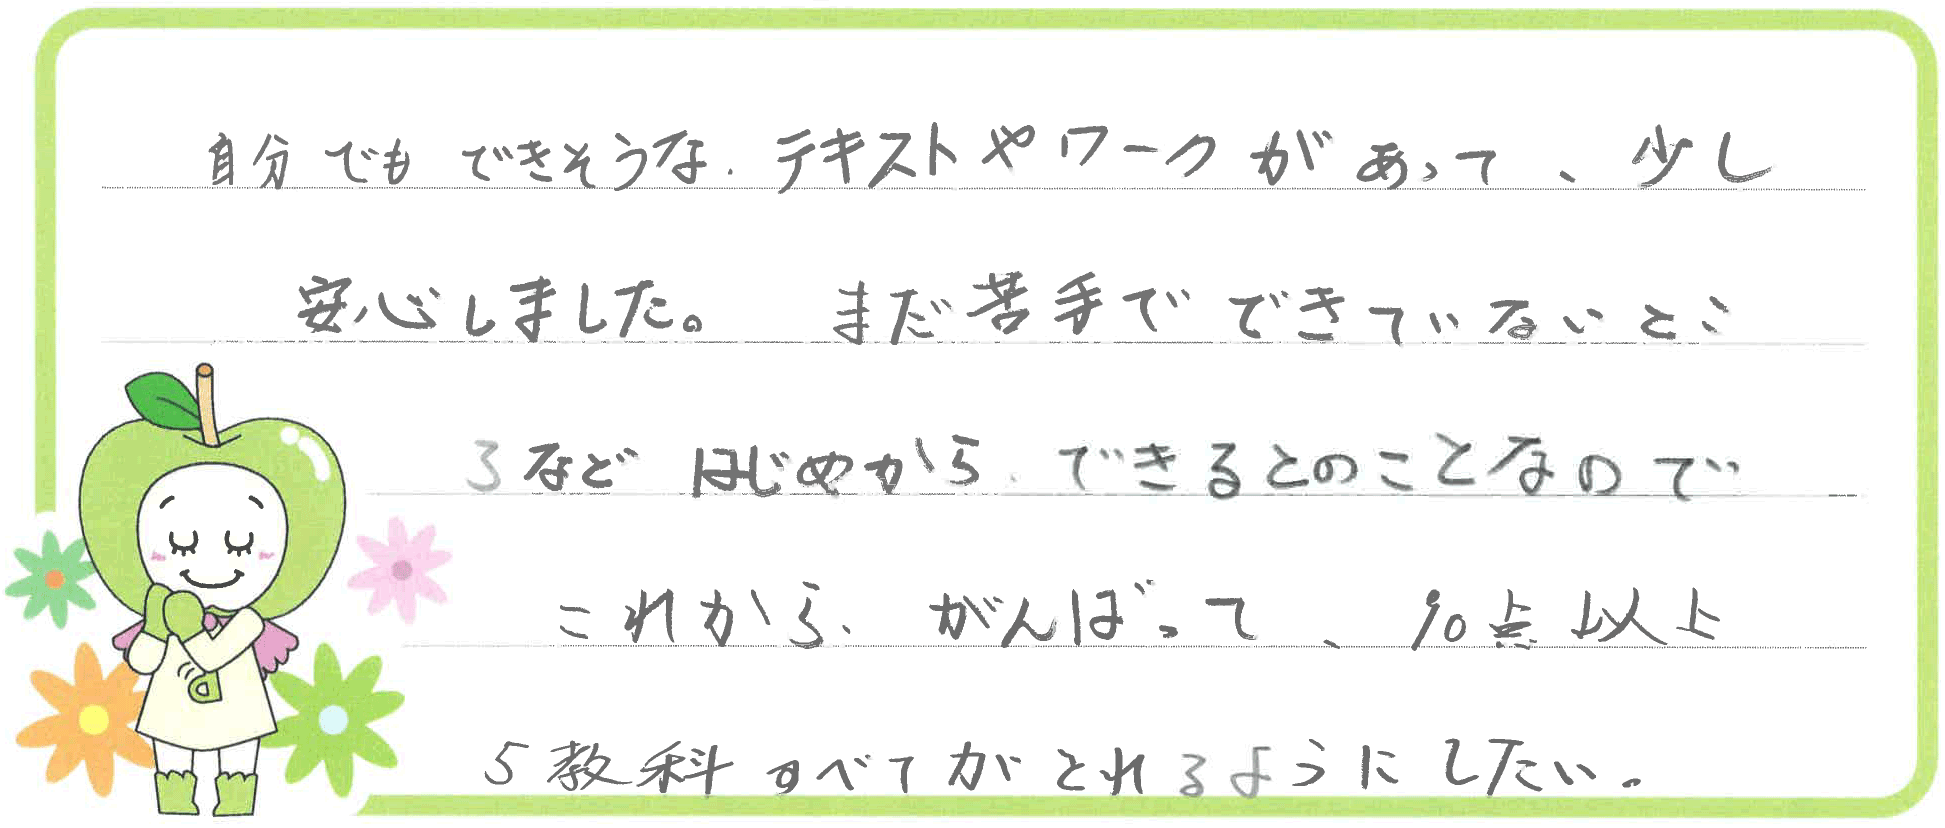 自分でもできそうな、テキストやワークがあって、少し
安心しました。 まだ苦手でできていないとこ
ろなどはじめから、できるとのことなので
これから、がんばって、90点以上
5教科すべてがとれるようにしたい。